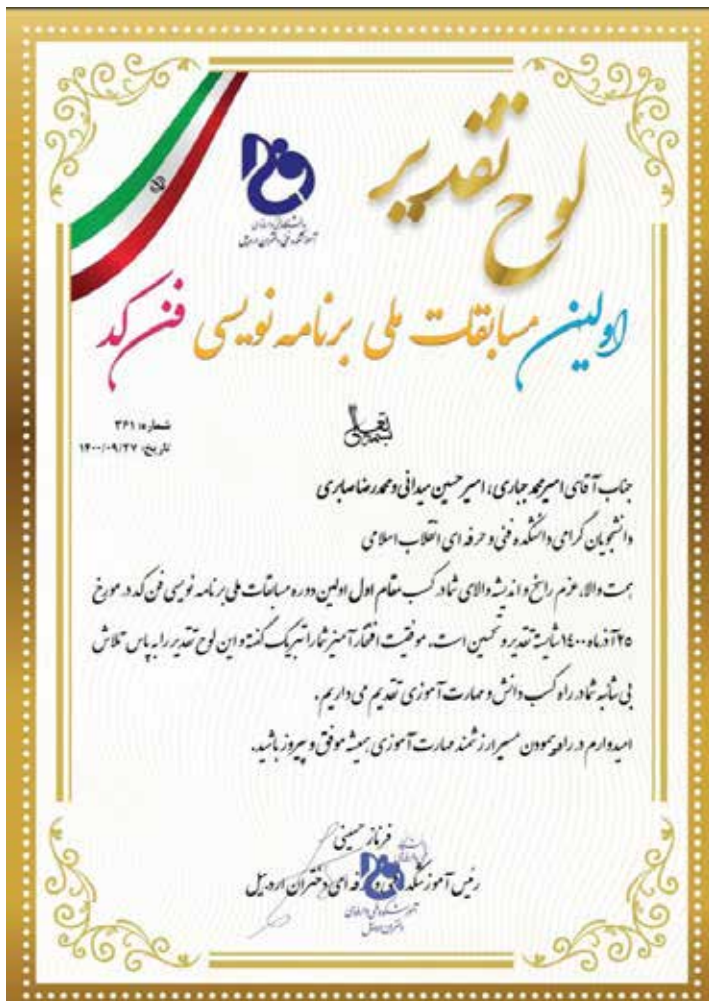 لوح تقدیر
دانشگاه فنی و حرفه‌ای
آموزشکده فنی دختران اردبیل
اولین مسابقات ملی برنامه نویسی فن کد
بسمه تعالی
شماره: ۳۶۱
تاریخ: ۱۴۰۰/۰۹/۲۷
جناب آقای امیرمحمد جباری، امیرحسین میدانی و محمدرضا صابری
دانشجویان گرامی دانشکده فنی و حرفه ای انقلاب اسلامی
همت والا، عزم راسخ و اندیشه والای شما در کسب مقام اول اولین دوره مسابقات ملی برنامه نویسی فن کد در مورخ
۲۵ آذرماه ۱۴۰۰ شایسته تقدیر و تحسین است. موفقیت افتخار آمیز شما را تبریک گفته و این لوح تقدیر را به پاس تلاش
بی شائبه شما در راه کسب دانش و مهارت آموزی تقدیم می داریم.
امیدوارم در راه پیمودن مسیر ارزشمند مهارت آموزی همیشه موفق و پیروز باشید.
فرناز حسینی
رئیس آموزشکده فنی و حرفه ای دختران اردبیل